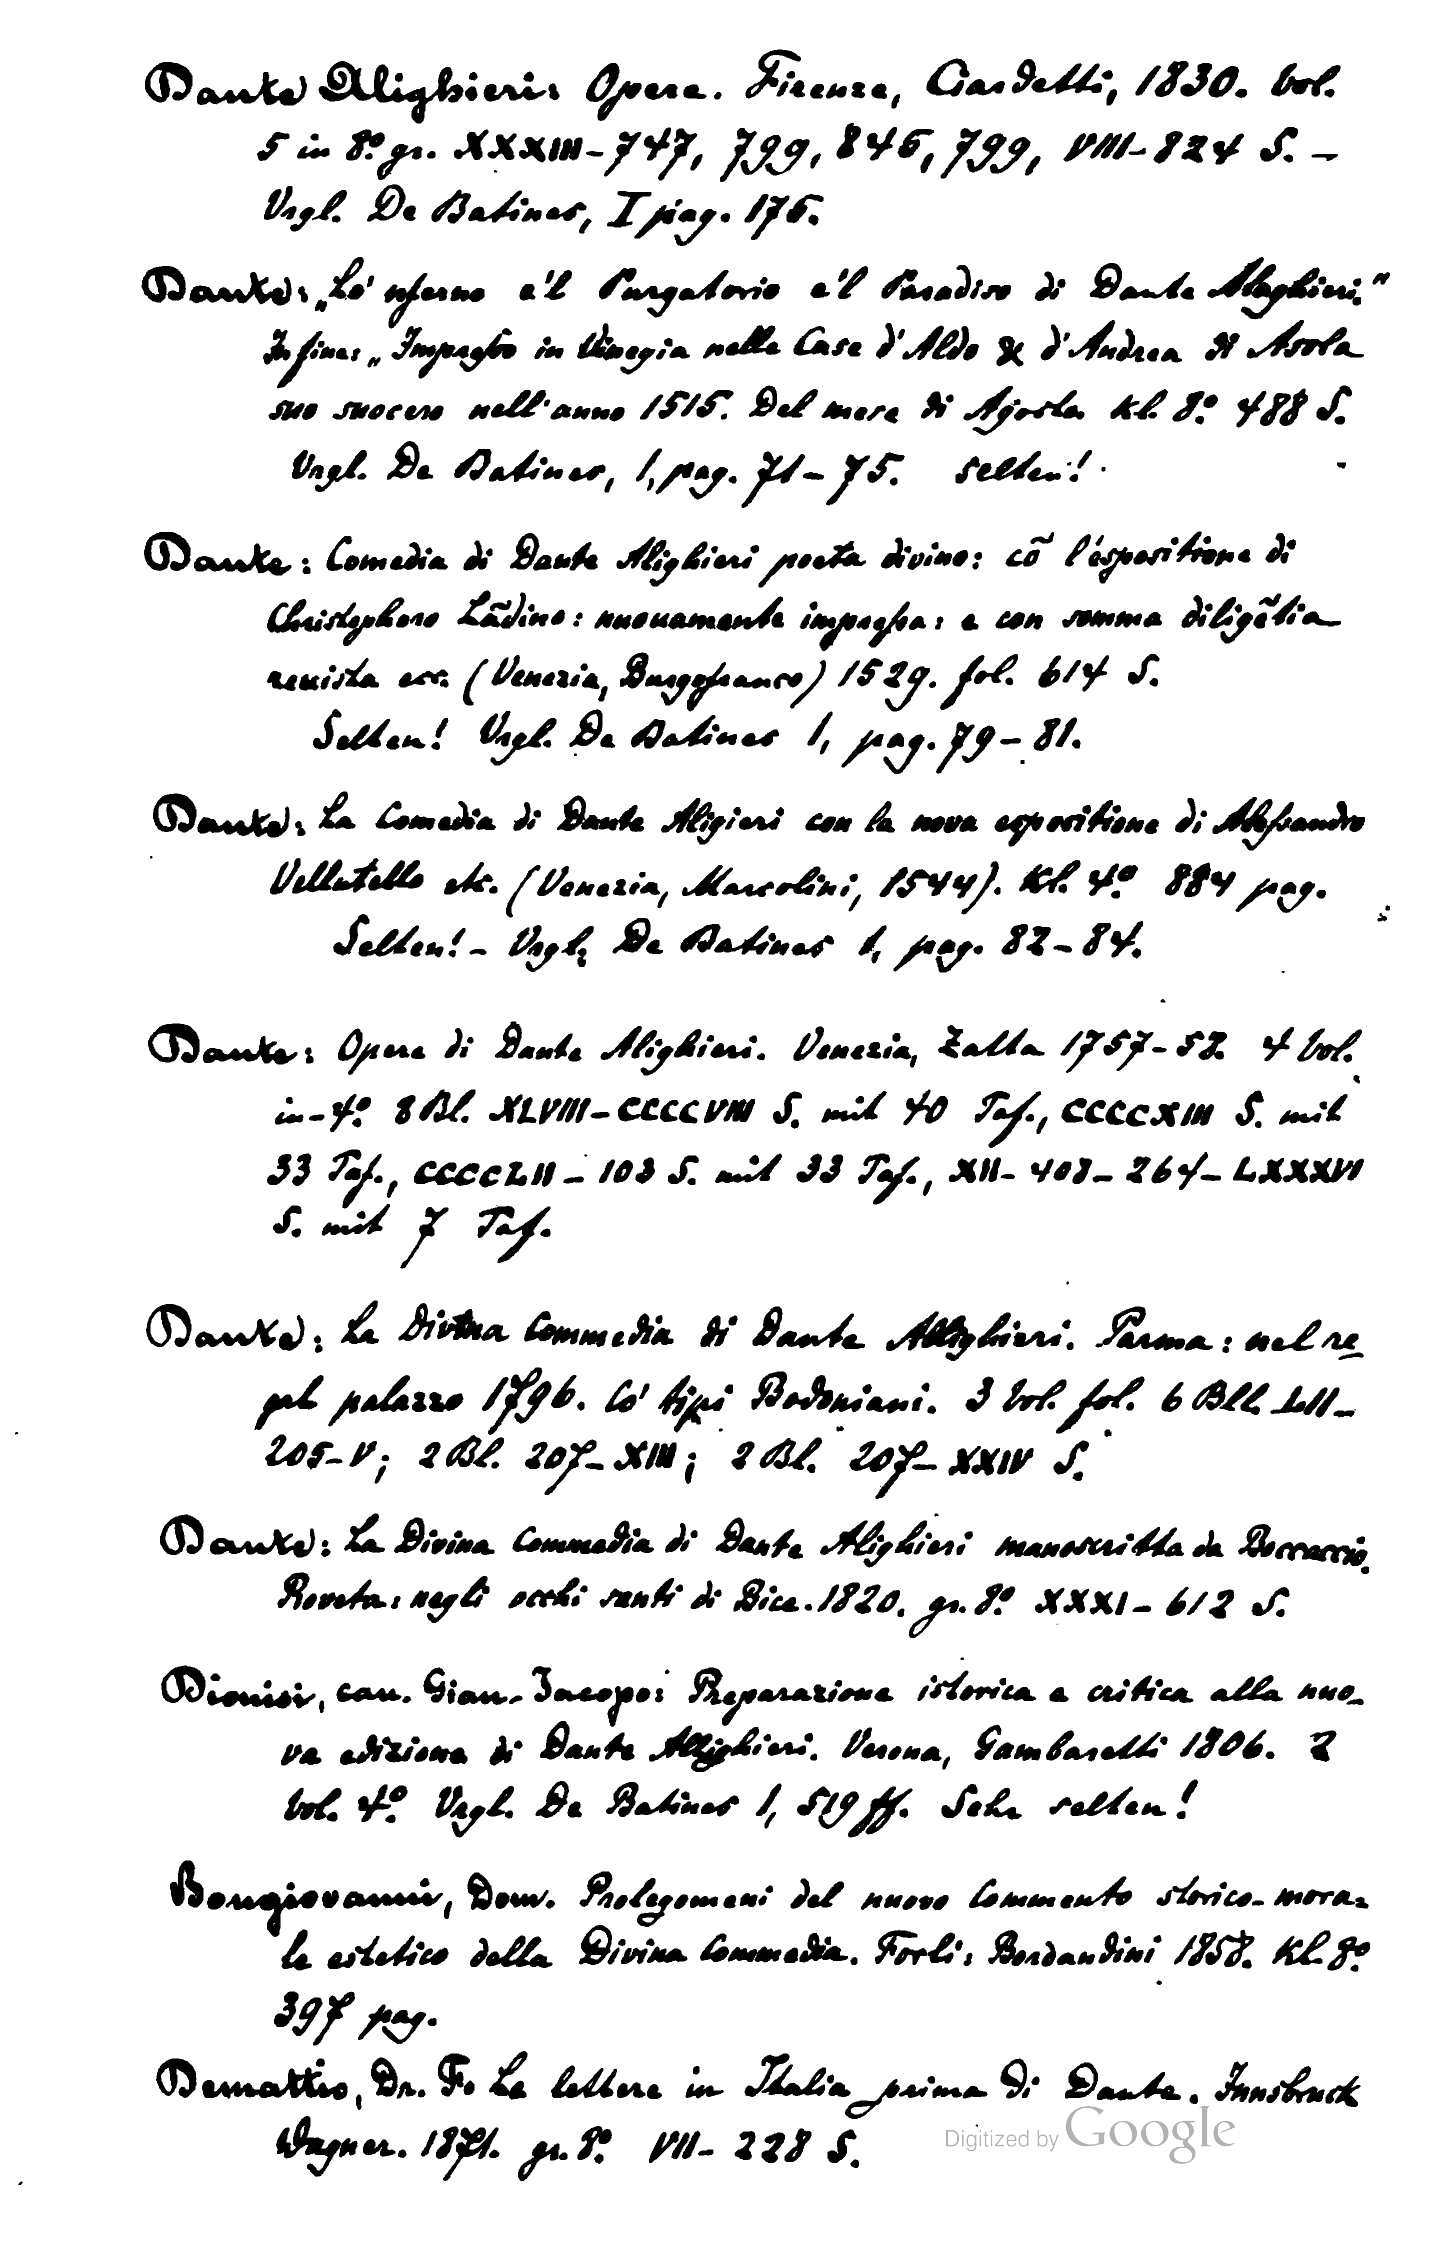 Dante Alighieri: Opere. Firenze, Ciardetti, 1830. Vol.
5 in 8º gr. XXXIII-747, 799, 846, 799, VIII-824 S. –
Vrgl. De Batines, I pag. 176.
Dante: „Lo'nferno e'l Purgatorio e'l Paradiso di Dante Alaghieri."
In fine: „Impresso in Vinegia nelle Case d'Aldo & d'Andrea di Asola
suo suocero nell'anno 1515. Del mese di Agosto. Kl. 8º. 488 S.
Vrgl. De Batines, I, pag. 71-75. selten!
Dante: Comedia di Dante Alighieri poeta divino: cõ l'espositione di
Christophoro Lãdino: nuouamente impressa: e con somma diligẽtia
reuista ecc. (Venezia, Burgofranco) 1529. fol. 614 S.
Selten! Vrgl. De Batines I, pag. 79-81.
Dante: La Comedia di Dante Aligieri con la nova espositione di Alessandro
Vellutello etc. (Venezia, Marcolini, 1544). Kl. 4º. 884 pag.
Selten! - Vrgl. De Batines I, pag. 82-84.
Dante: Opere di Dante Alighieri. Venezia, Zatta 1757-58. 4 Vol.
in-4º. 8 Bl. XLVIII-CCCCVIII S. mit 40 Taf., CCCCXIII S. mit
33 Taf., CCCCLII-103 S. mit 33 Taf., XII-408-264-LXXXVI
S. mit 7 Taf.
Dante: La Divina Commedia di Dante Allighieri. Parma: nel re-
gal palazzo 1796. Co' tipi Bodoniani. 3 Vol. fol. 6 Bll. LII-
205-V; 2 Bl. 207-XIII; 2 Bl. 207-XXIV S.
Dante: La Divina Commedia di Dante Alighieri manoscritta da Boccaccio.
Roveta: negli occhi santi di Bice. 1820. gr. 8º. XXXI-612 S.
Dionisi, can. Gian-Jacopo: Preparazione istorica e critica alla nuo-
va edizione di Dante Allighieri. Verona, Gambaretti 1806. 2
Vol. 4º. Vrgl. De Batines I, 519 ff. Sehr selten!
Bongiovanni, Dom. Prolegomeni del nuovo Commento storico-mora-
le estetico della Divina Commedia. Forli: Bordandini 1858. Kl. 8º.
397 pag.
Demattio, Dr. F. Le lettere in Italia prima di Dante. Innsbruck
Wagner. 1871. gr. 8º. VII-228 S.
Digitized by Google